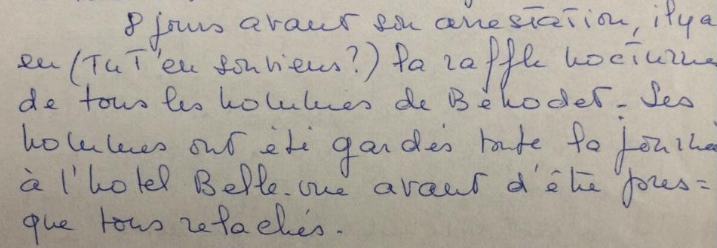 8 jours avant son arrestation, il y a
eu (Tu T'en souviens?) la raffle nocturne
de tous les hommes de Bénodet. Ses
hommes ont été gardés toute la journée
à l'hotel Belle-vue avant d'être pres=
que tous relachés.